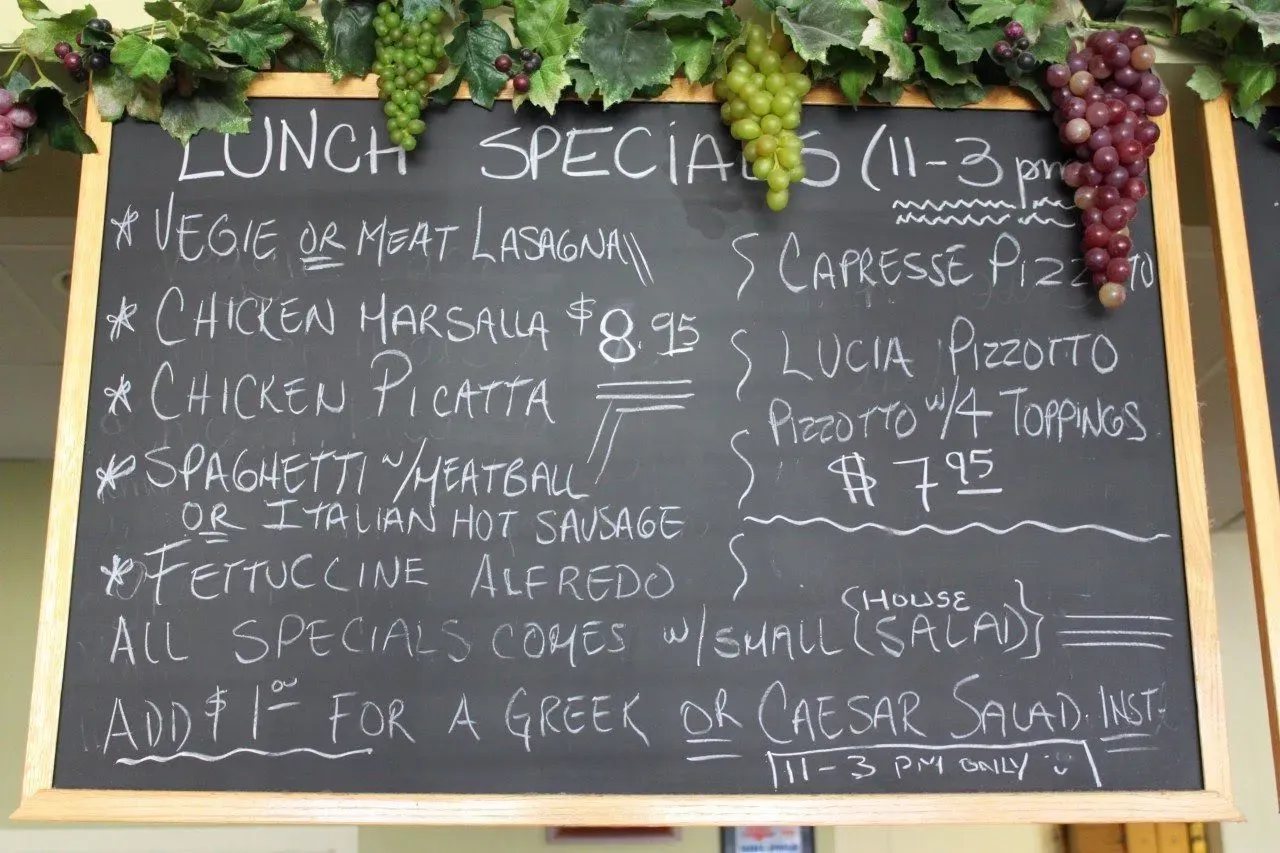 LUNCH SPECIALS (11-3 pm
* VEGIE OR MEAT LASAGNA
* CHICKEN MARSALLA $8.95
* CHICKEN PICATTA
* SPAGHETTI w/MEATBALL
OR ITALIAN HOT SAUSAGE
* FETTUCCINE ALFREDO
CAPRESSE
LUCIA PIZZOTTO
PIZZOTTO w/4 TOPPINGS
$ 7.95
ALL SPECIALS COMES w/SMALL {HOUSE SALAD}
ADD $1.00 FOR A GREEK OR CAESAR SALAD. INST.
11-3 PM ONLY